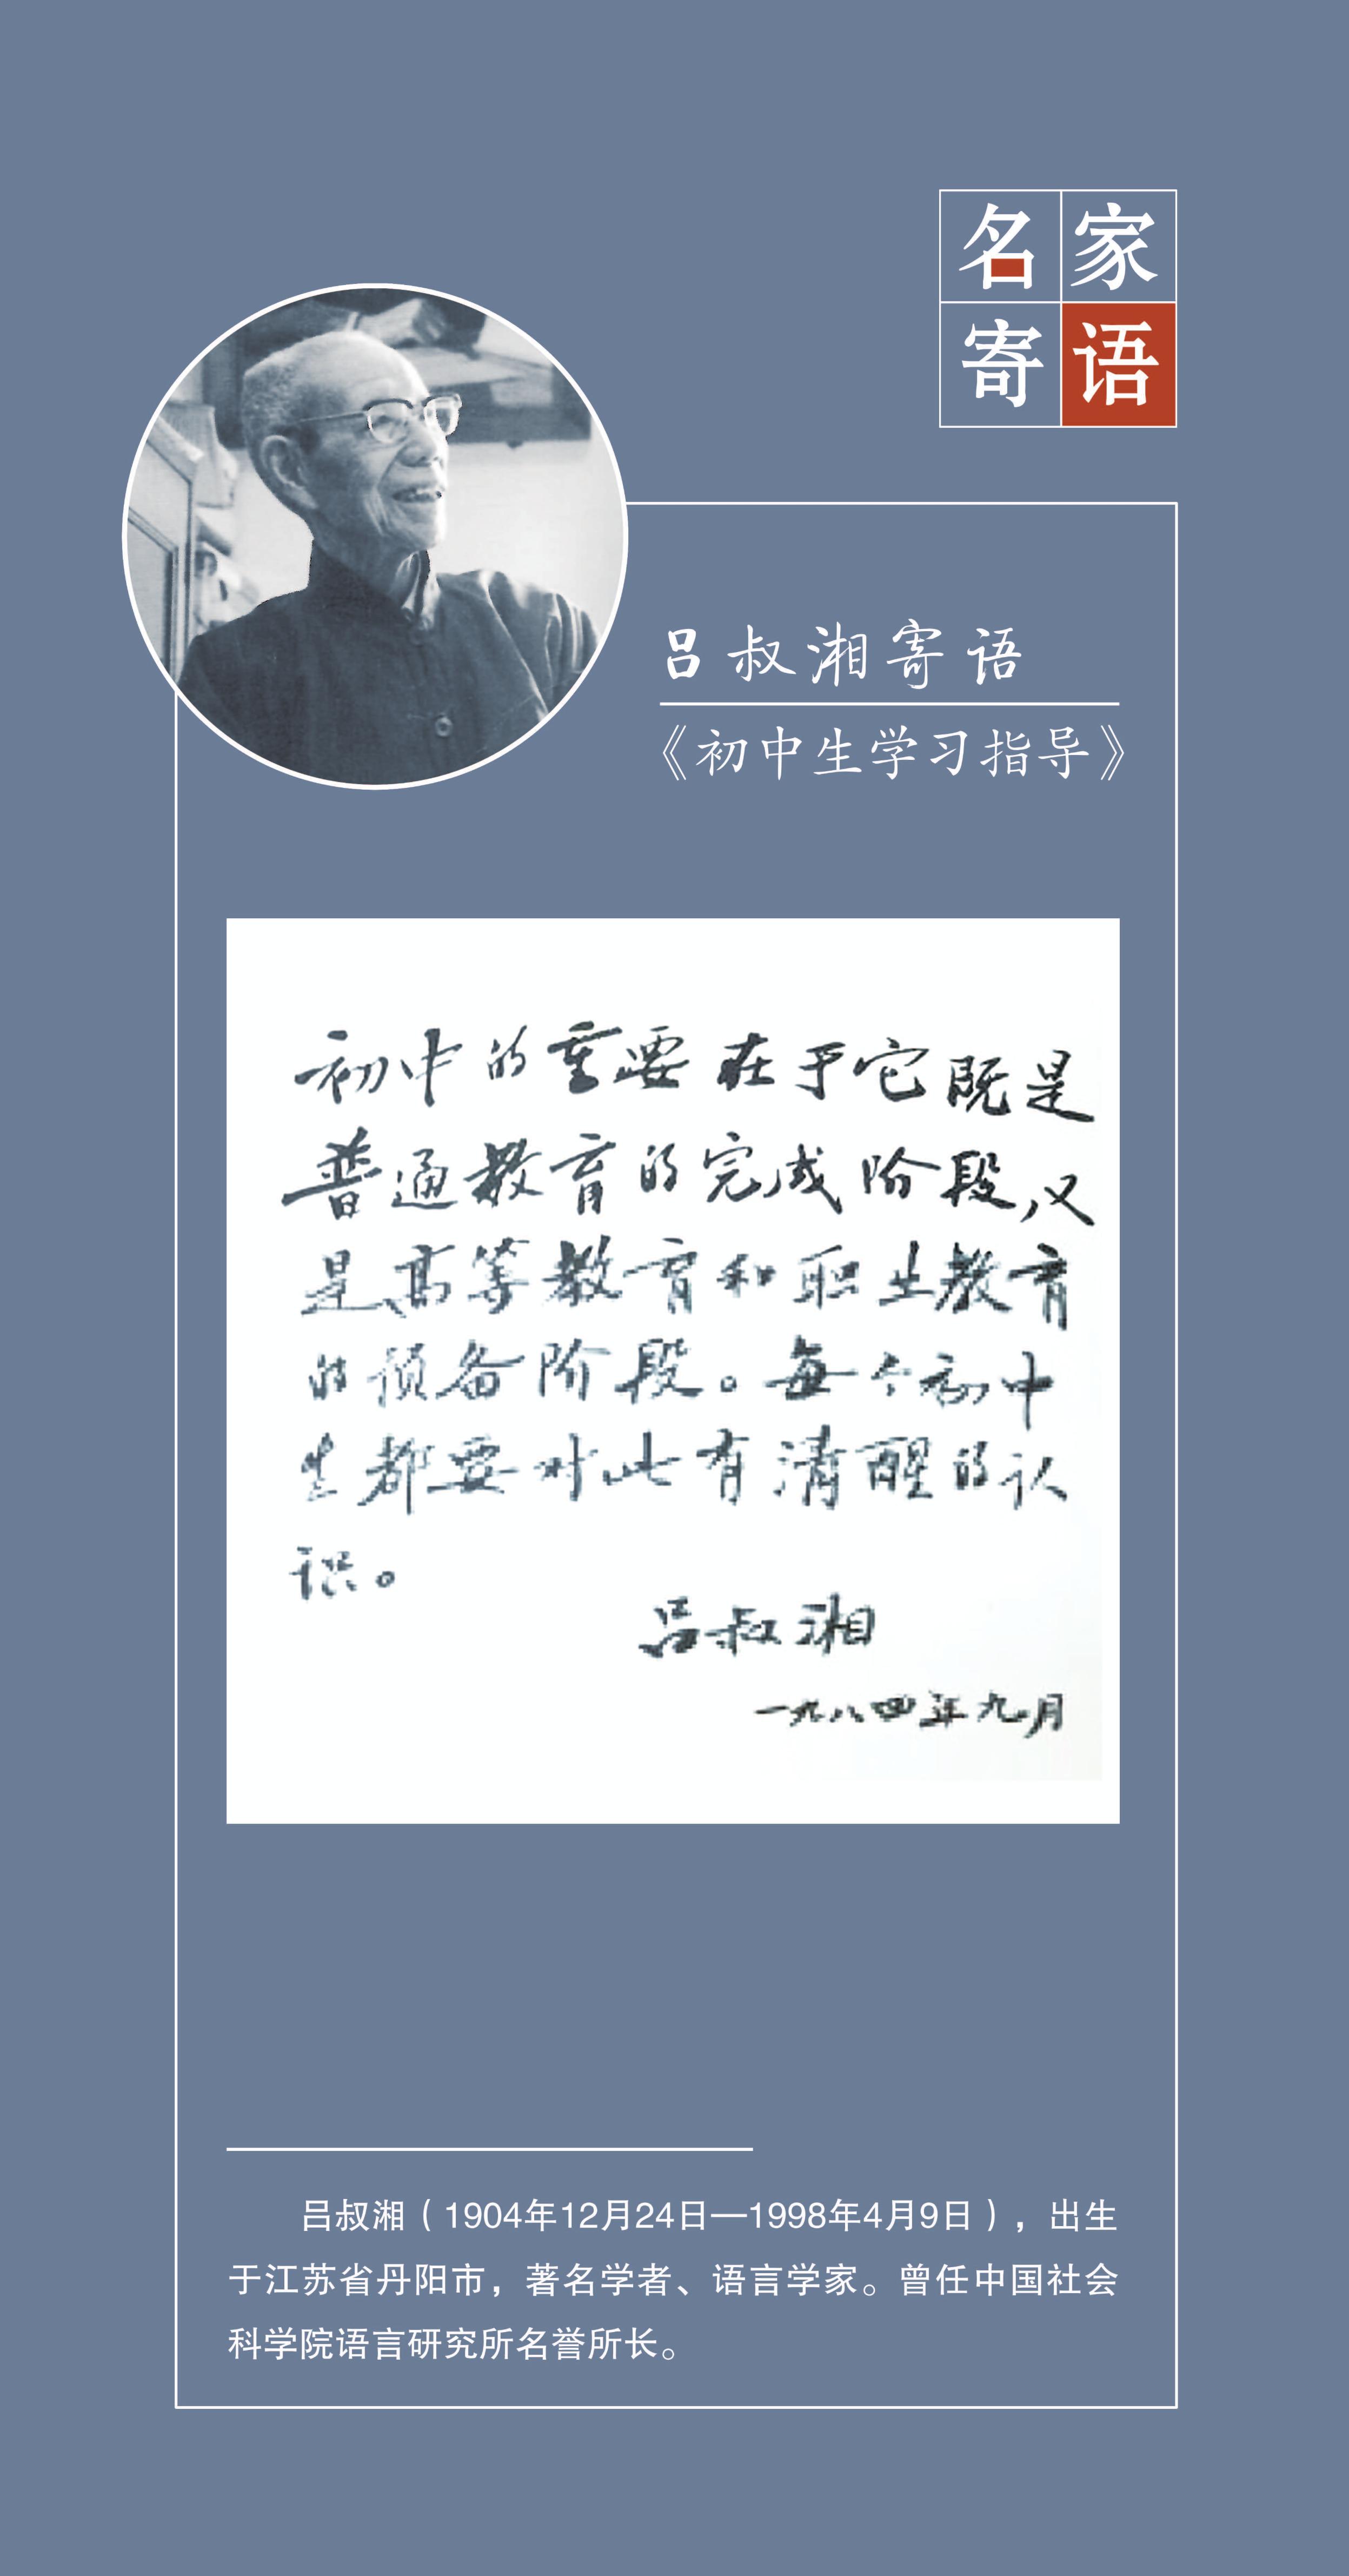 名家
寄语
吕叔湘寄语
《初中生学习指导》
初中的重要在于它既是
普通教育的完成阶段,又
是高等教育和职业教育
的预备阶段。每个初中
生都要对此有清醒的认
识。
吕叔湘
一九八四年九月
吕叔湘(1904年12月24日—1998年4月9日),出生
于江苏省丹阳市,著名学者、语言学家。曾任中国社会
科学院语言研究所名誉所长。